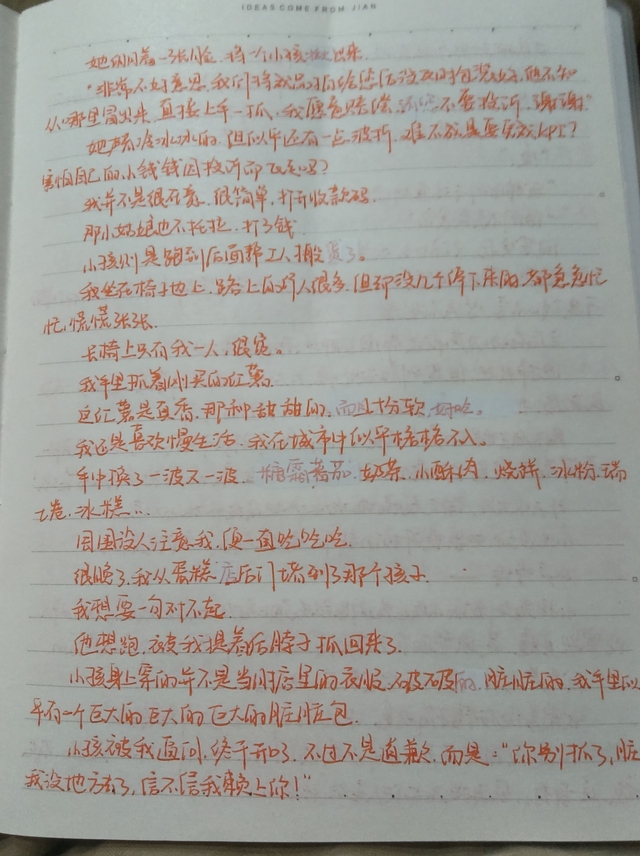 IDEAS COME FROM JIAN
她阴着一张脸，将一个小孩揪出来.
"非常不好意思，我们将成品抓给您后没及时包装好，他不知
从哪里冒出来，直接上手一抓，我愿意赔偿，不要投诉，谢谢"
她声冷冰冰的，但似乎还有一点波折，难不成是要完成KPI？
害怕自己的小钱钱因投诉而飞走吗？
我并不是很在意，很简单，打开收款码.
那小姑娘也不托拉，打了钱.
小孩则是跑到后面帮工人搬 了。
我坐在椅子上，路上的行人很多，但却没几个停下来的，都急急忙
忙，慌慌张张.
长椅上只有我一人，很宽。
我手里抓着刚买的红薯.
这红薯是真香，那种甜甜的，而且十份软，好吃。
我还是喜欢慢生活，我在城市中似乎格格不入。
手中换了一波又一波，糖霜蕃茄，奶茶，小酥肉，烧饼，冰粉，瑞
士卷，冰糕...
周围没人注意我，便一直吃吃吃.
很晚了，我从蛋糕店后门堵到了那个孩子.
我想要一句对不起.
他想跑，被我提着后脖子抓回来了.
小孩身上穿的并不是当时店里的衣服，破破的，脏脏的，我手里似
乎有一个巨大的，巨大的，巨大的脏脏包.
小孩被我逼问，终于开口了，不过不是道歉，而是："你别抓了，脏
我没地方了，信不信我赖上你！"